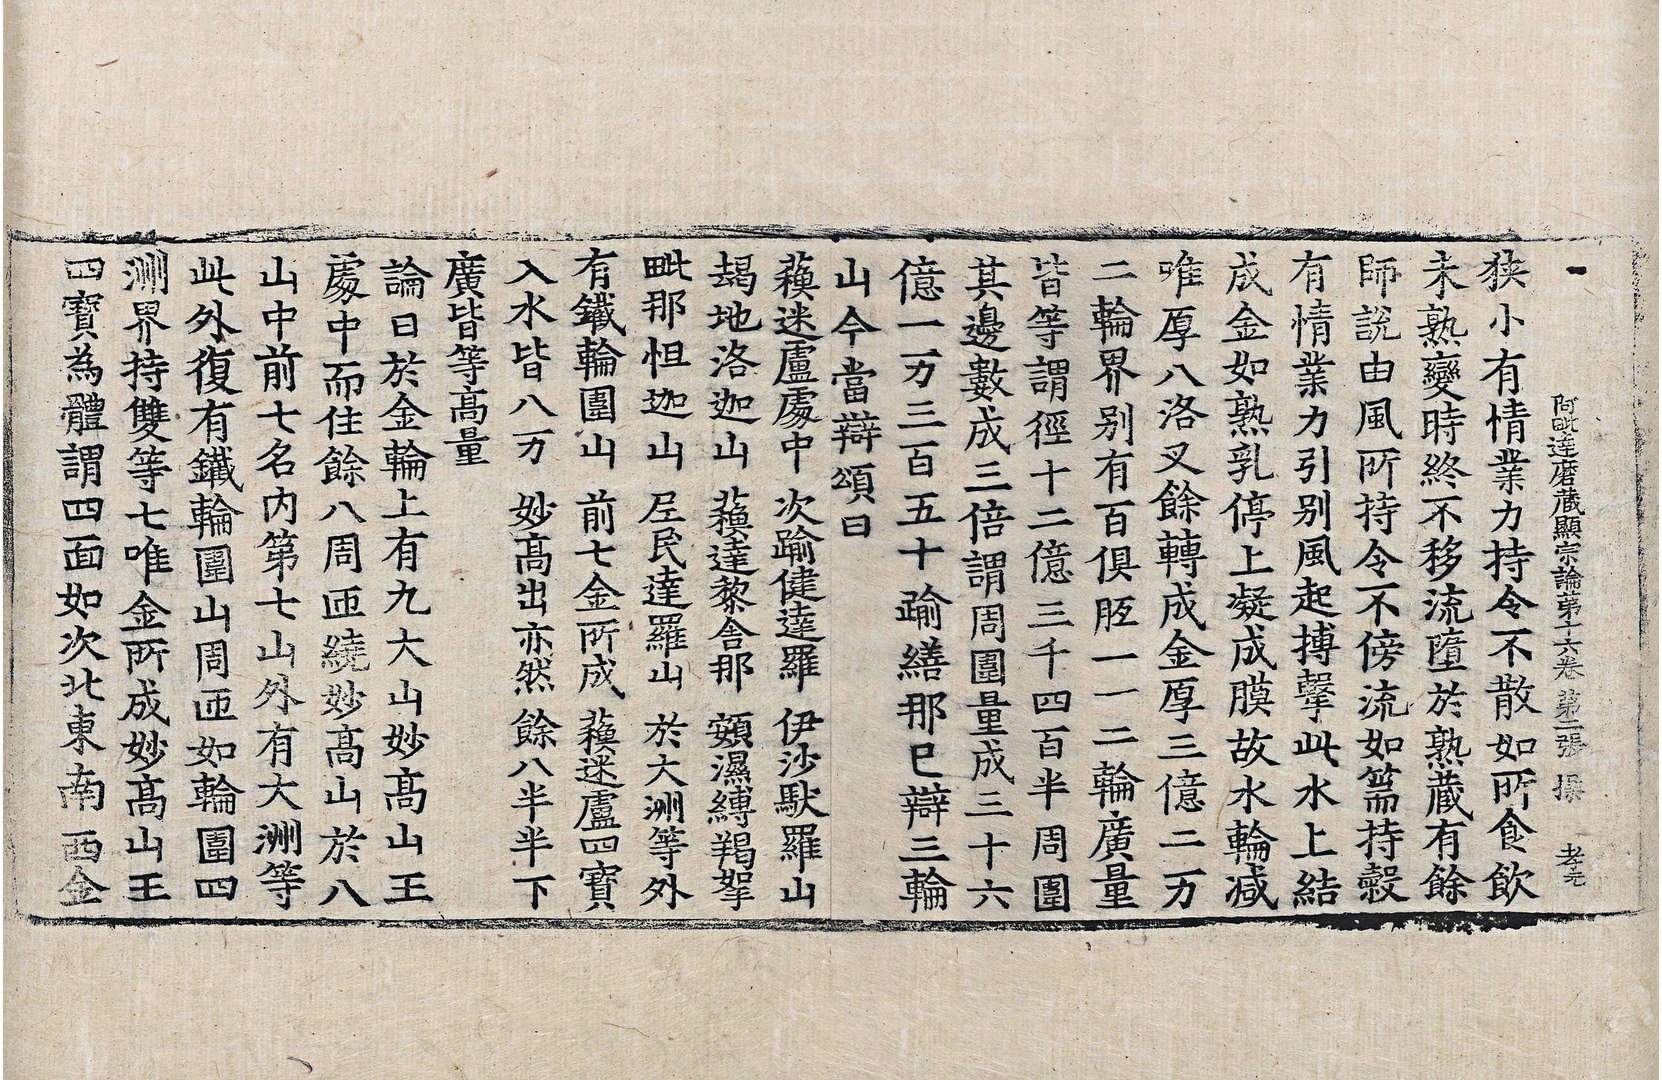 阿毗達磨藏顯宗論第十六卷 第二張 操 孝元
狹小有情業力持令不散如所食飲
未熟變時終不移流墮於熟藏有餘
師說由風所持令不傍流如篅持穀
有情業力引別風起搏擊此水上結
成金如熟乳停上凝成膜故水輪減
唯厚八洛叉餘轉成金厚三億二万
二輪界別有百俱胝一一二輪廣量
皆等謂徑十二億三千四百半周圍
其邊數成三倍謂周圍量成三十六
億一万三百五十踰繕那已辯三輪
山今當辯頌曰
蘇迷盧處中 次踰健達羅 伊沙馱羅山
朅地洛迦山 蘇達黎舍那 頞濕縛羯拏
毗那怛迦山 尼民達羅山 於大洲等外
有鐵輪圍山 前七金所成 蘇迷盧四寶
入水皆八万 妙高出亦然 餘八半半下
廣皆等高量
論曰於金輪上有九大山妙高山王
處中而住餘八周匝繞妙高山於八
山中前七名內第七山外有大洲等
此外復有鐵輪圍山周匝如輪圍四
洲界持雙等七唯金所成妙高山王
四寶為體謂四面如次北東南西金